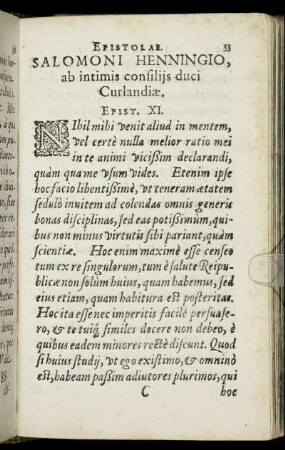 EPISTOLAE. 33
SALOMONI HENNINGIO,
ab intimis consilijs duci
Curlandiæ.
EPIST. XI.
NIhil mihi venit aliud in mentem,
vel certè nulla melior ratio mei
in te animi vicißim declarandi,
quàm qua me vsum vides. Etenim ipse
hoc facio libentißimè, vt teneram ætatem
sedulò inuitem ad colendas omnis generis
bonas disciplinas, sed eas potißimum, qui-
bus non minus virtutis sibi pariant, quàm
scientiæ. Hoc enim maximè esse censeo
tum ex re singulorum, tum è salute Reipu-
blicæ non solùm huius, quam habemus, sed
eius etiam, quam habitura est posteritas.
Hoc ita esse nec imperitis facilè persuase-
ro, & te tuiq́ similes docere non debeo, è
quibus eadem minores rectè discunt. Quod
si huius studij, vt ego existimo, & omninò
est, habeam paßim adiutores plurimos, qui
C hoc